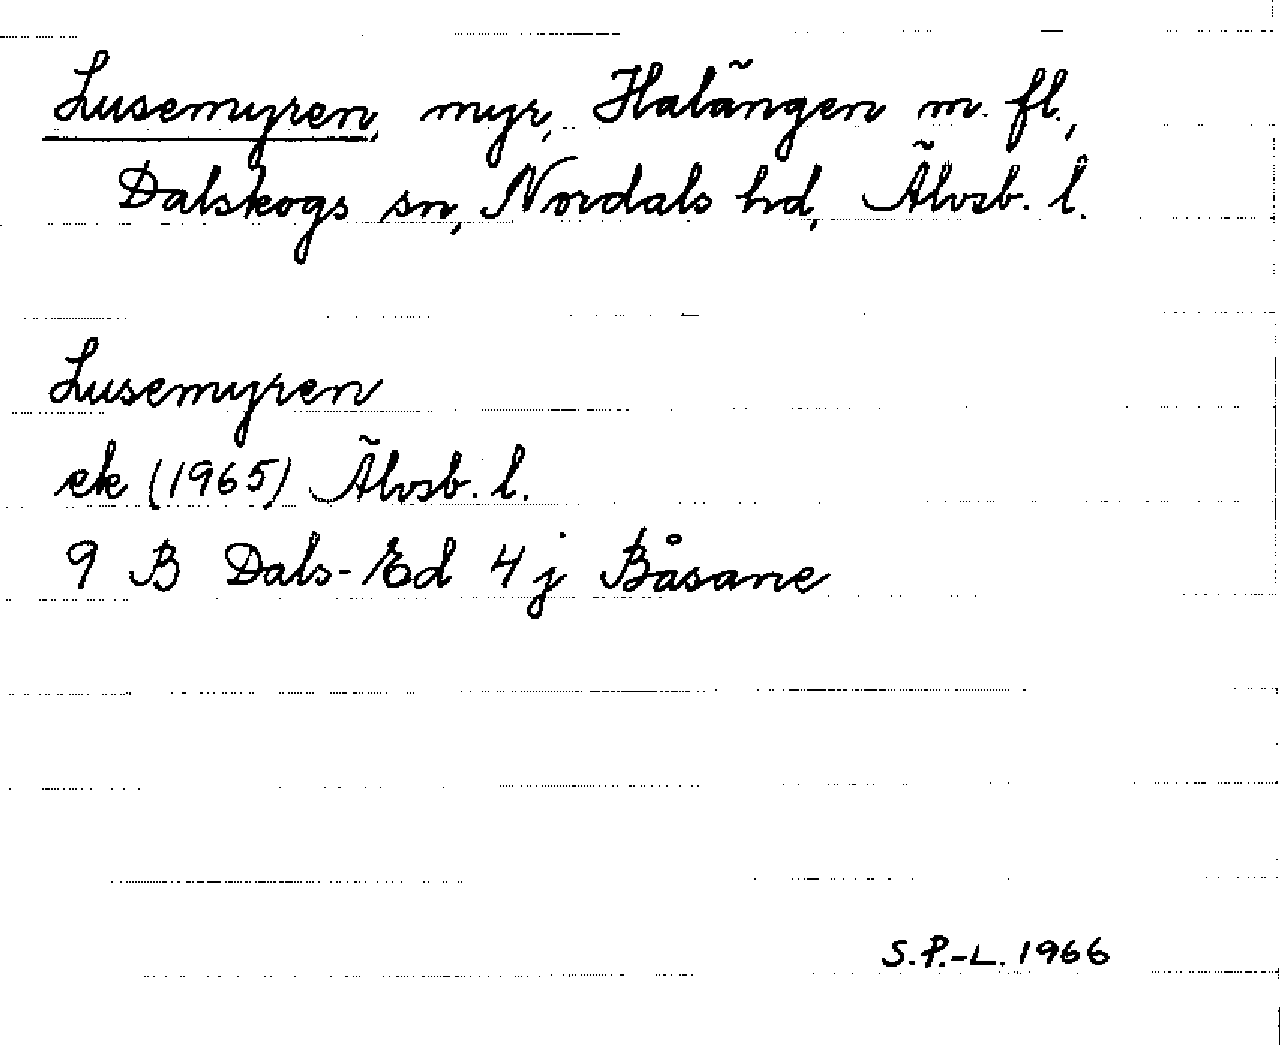 Lusemyren, myr, Halängen m. fl.,
Dalskogs sn, Nordals hd, Älvsb. l.
Lusemyren
ek (1965) Älvsb. l.
9 B Dals-Ed 4 j Båsane
S.P.-L. 1966